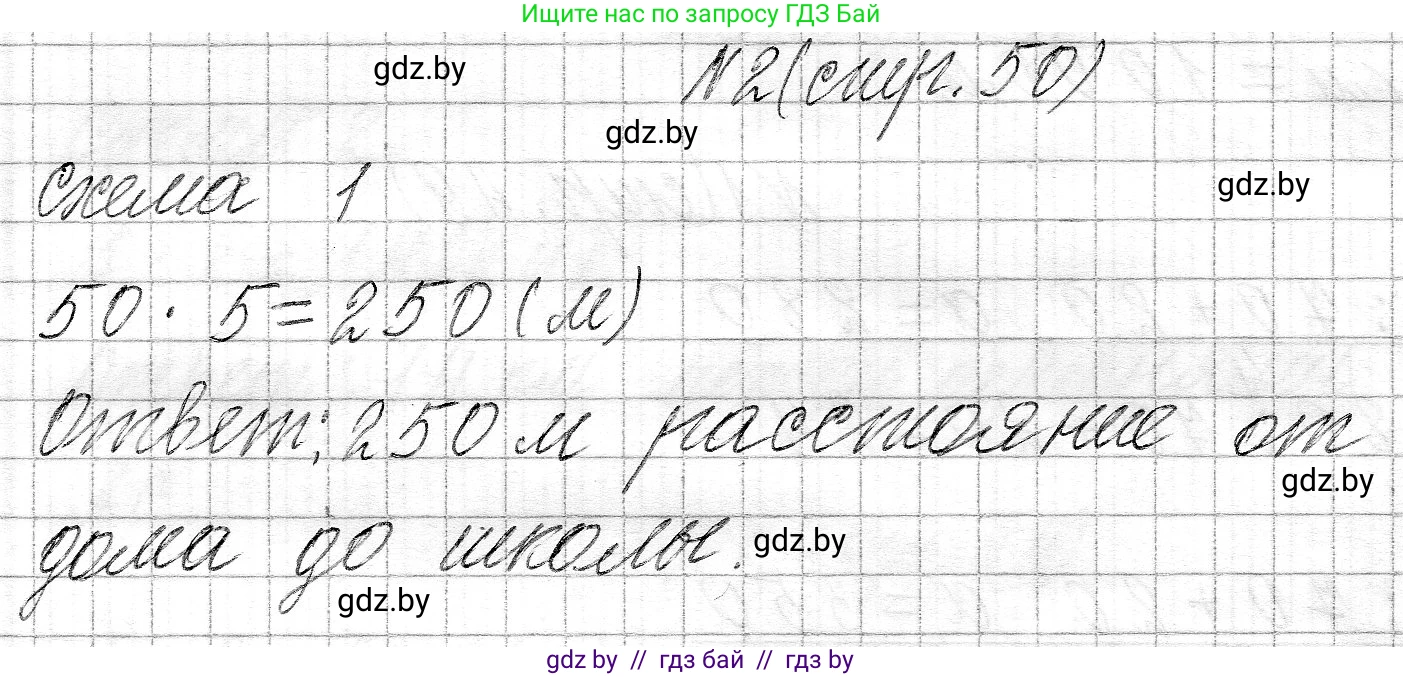 Ищите нас по запросу ГДЗ Бай
gdz.by
№2 (стр. 50)
gdz.by
Схема 1
gdz.by
50 · 5 = 250 (м)
Ответ: 250 м расстояние от
gdz.by
дома до школы.
gdz.by
gdz.by
gdz by // гдз бай // гдз by